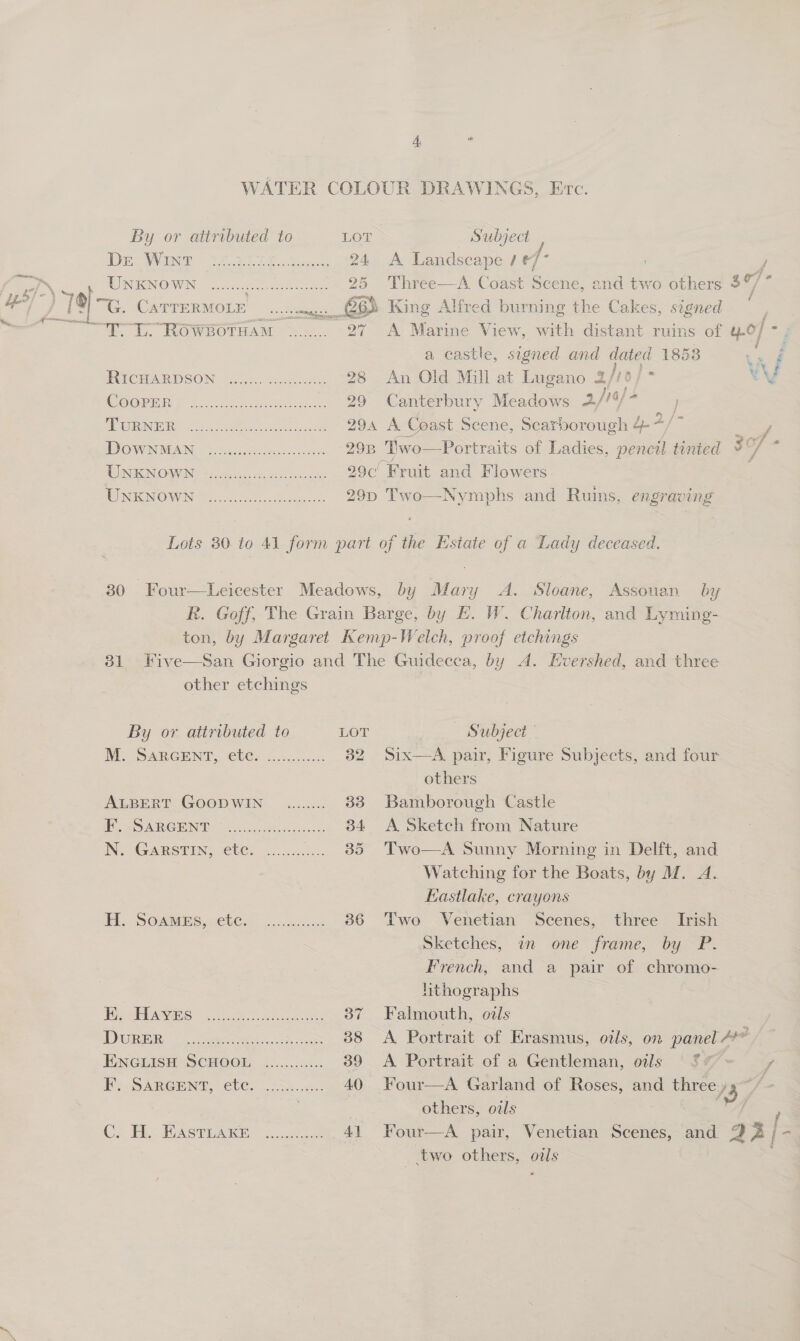 4
WATER COLOUR DRAWINGS, ETC.
By or attributed to LOT Subject
DE WINT ............ 24 A Landscape
UNKNOWN ............ 25 Three—A Coast Scene, and two others 30/-
G. CATTERMOLE ............ 26 King Alfred burning the Cakes, signed
T. L. ROWBOTHAM ........ 27 A Marine View, with distant ruins of
a castle, signed and dated 1853
RICHARDSON ............ 28 An Old Mill at Lugano 2/10/-
COOPER ............ 29 Canterbury Meadows 2/10/-
TURNER ............ 29A A Coast Scene, Scarborough
DOWNMAN ............ 29B Two—Portraits of Ladies, pencil tinted 30/-
UNKNOWN ............ 29C Fruit and Flowers
UNKNOWN ............ 29D Two—Nymphs and Ruins, engraving
Lots 30 to 41 form part of the Estate of a Lady deceased.
30 Four—Leicester Meadows, by Mary A. Sloane, Assouan by
R. Goff, The Grain Barge, by E. W. Charlton, and Lyming-
ton, by Margaret Kemp-Welch, proof etchings
31 Five—San Giorgio and The Guidecca, by A. Evershed, and three
other etchings
By or attributed to LOT Subject
M. SARGENT, etc. ............ 32 Six—A pair, Figure Subjects, and four
others
ALBERT GOODWIN ........ 33 Bamborough Castle
F. SARGENT ............ 34 A Sketch from Nature
N. GARSTIN, etc. ............ 35 Two—A Sunny Morning in Delft, and
Watching for the Boats, by M. A.
Eastlake, crayons
H. SOAMES, etc. ............ 36 Two Venetian Scenes, three Irish
Sketches, in one frame, by P.
French, and a pair of chromo-
lithographs
E. HAYES ............ 37 Falmouth, oils
DURER ............ 38 A Portrait of Erasmus, oils, on panel
ENGLISH SCHOOL ............ 39 A Portrait of a Gentleman, oils
F. SARGENT, etc. ............ 40 Four—A Garland of Roses, and three
others, oils
C. H. EASTLAKE ............ 41 Four—A pair, Venetian Scenes, and 22/-
two others, oils